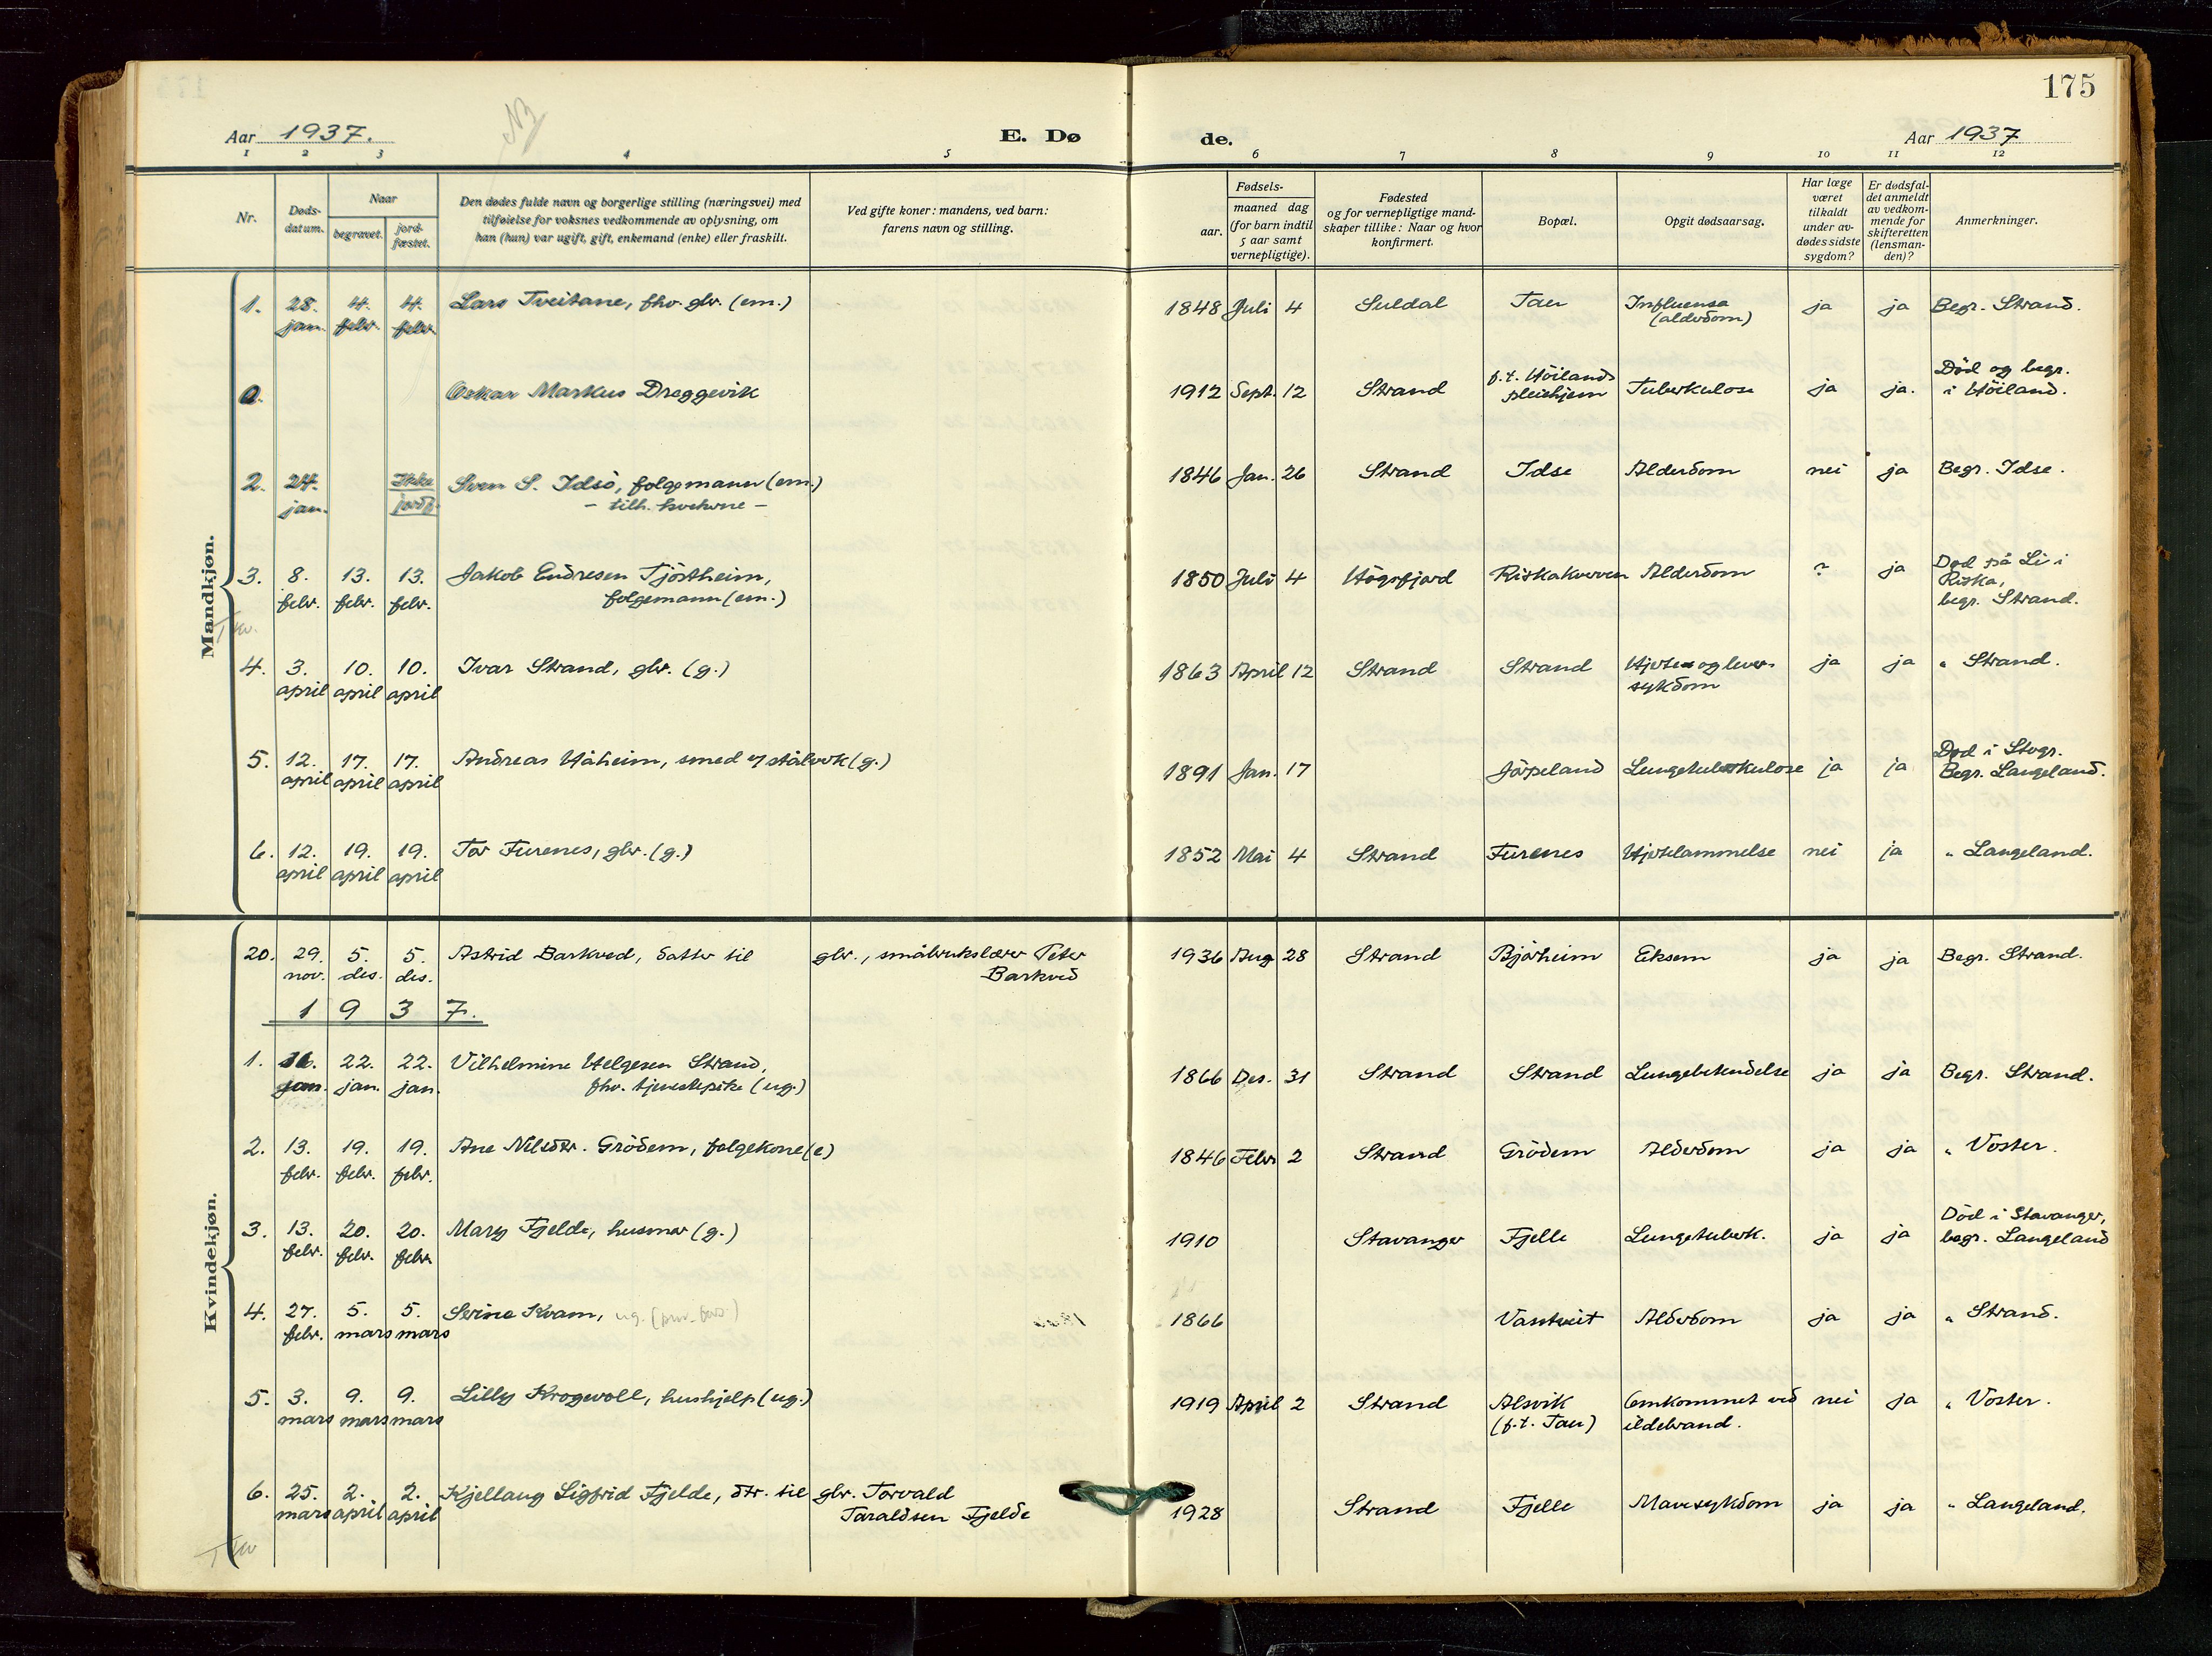 175
Aar 1937.
E. Dø
de.
Aar 1937
1 2 3 4 5 6 7 8 9 10 11 12
Nr.
Døds-
datum.
Naar
begravet.
jord-
fæstet.
Den dødes fulde navn og borgerlige stilling (næringsvei) med
tilføielse for voksnes vedkommende av oplysning, om
han (hun) var ugift, gift, enkemand (enke) eller fraskilt.
Ved gifte koner: mandens, ved barn:
farens navn og stilling.
Fødsels-
aar.
maaned dag
(for barn indtil
5 aar samt
vernepligtige).
Fødested
og for vernepligtige mand-
skaper tillike: Naar og hvor
konfirmert.
Bopæl.
Opgit dødsaarsag.
Har læge
været
tilkaldt
under av-
dødes sidste
sygdom?
Er dødsfal-
det anmeldt
av vedkom-
mende for
skifteretten
(lensman-
den)?
Anmerkninger.
Mandkjøn.
1. 28. 4. 4. Lars Tveitane, fhv. gbr. (em.) 1848 Juli 4 Suldal Tau Influensa ja ja Begr. Strand.
jan. febr. febr. (alderdom)
0. Oskar Markus Dreggevik 1912 Sept. 12 Strand f.t. Höilands Tuberkulose ja ja. Död og begr.
pleiehjem i Höiland.
2. 24. Ikke Sven S. Idsö, folgemann (em.) 1846 Jan. 26 Strand Idse Alderdom nei ja Begr. Idse.
jan. jordf. – tilh. kvekerne –
3. 8. 13. 13. Jakob Endresen Tjöstheim, 1850 Juli 4 Högsfjord Riskakverven Alderdom ? ja Död på Li i
febr. febr. febr. folgemann (em.) Riska,
begr. Strand.
4. 3. 10. 10. Ivar Strand, gbr. (g.) 1863 April 12 Strand Strand Hjerte og lever- ja ja " Strand.
april april april sykdom
5. 12. 17. 17. Andreas Håheim, smed v/ stålverk (g.) 1891 Jan. 17 Jörpeland Lungetuberkulose ja ja Död i Stvgr.
april april april Begr. Langeland.
6. 12. 19. 19. Tor Furenes, gbr. (g.) 1852 Mai 4 Strand Furenes Hjertelammelse nei ja " Langeland.
april april april
Kvindekjøn.
20. 29. 5. 5. Astrid Barkved, datter til gbr., småbrukslærer Peter 1936 Aug 28 Strand Bjørheim Eksem ja ja Begr. Strand.
nov. des. des. Barkved
1 9 3 7.
1. 16. 22. 22. Vilhelmine Helgesen Strand, 1866 Des. 31 Strand Strand Lungebetendelse ja ja Begr. Strand.
jan. jan. jan. fhv. tjenestepike (ug.)
2. 13. 19. 19. Ane Nilsdtr. Grödem, folgekone (e) 1846 Febr 2 Strand Grödem Alderdom ja ja " Voster.
febr. febr. febr.
3. 13. 20. 20. Mary Fjelde, husmor (g.) 1910 Stavanger Fjelle Lungetuberk. ja ja Död i Stavanger,
febr. febr. febr begr. Langeland
4. 27. 5. 5. Serine Kvam, ug. 1866 Vastveit Alderdom ja ja " Strand.
febr. mars mars
5. 3. 9. 9. Lilly Krogevoll, hushjelp (ug.) 1919 April 2 Strand Alsvik Omkommet ved nei ja " Voster.
mars mars mars (f.t. Tau) ildebrand.
6. 25. 2. 2. Kjellaug Sigfrid Fjelde, dtr. til gbr. Torvald 1928 Strand Fjelle Mavesykdom ja ja " Langeland.
mars april april Taraldsen Fjelde